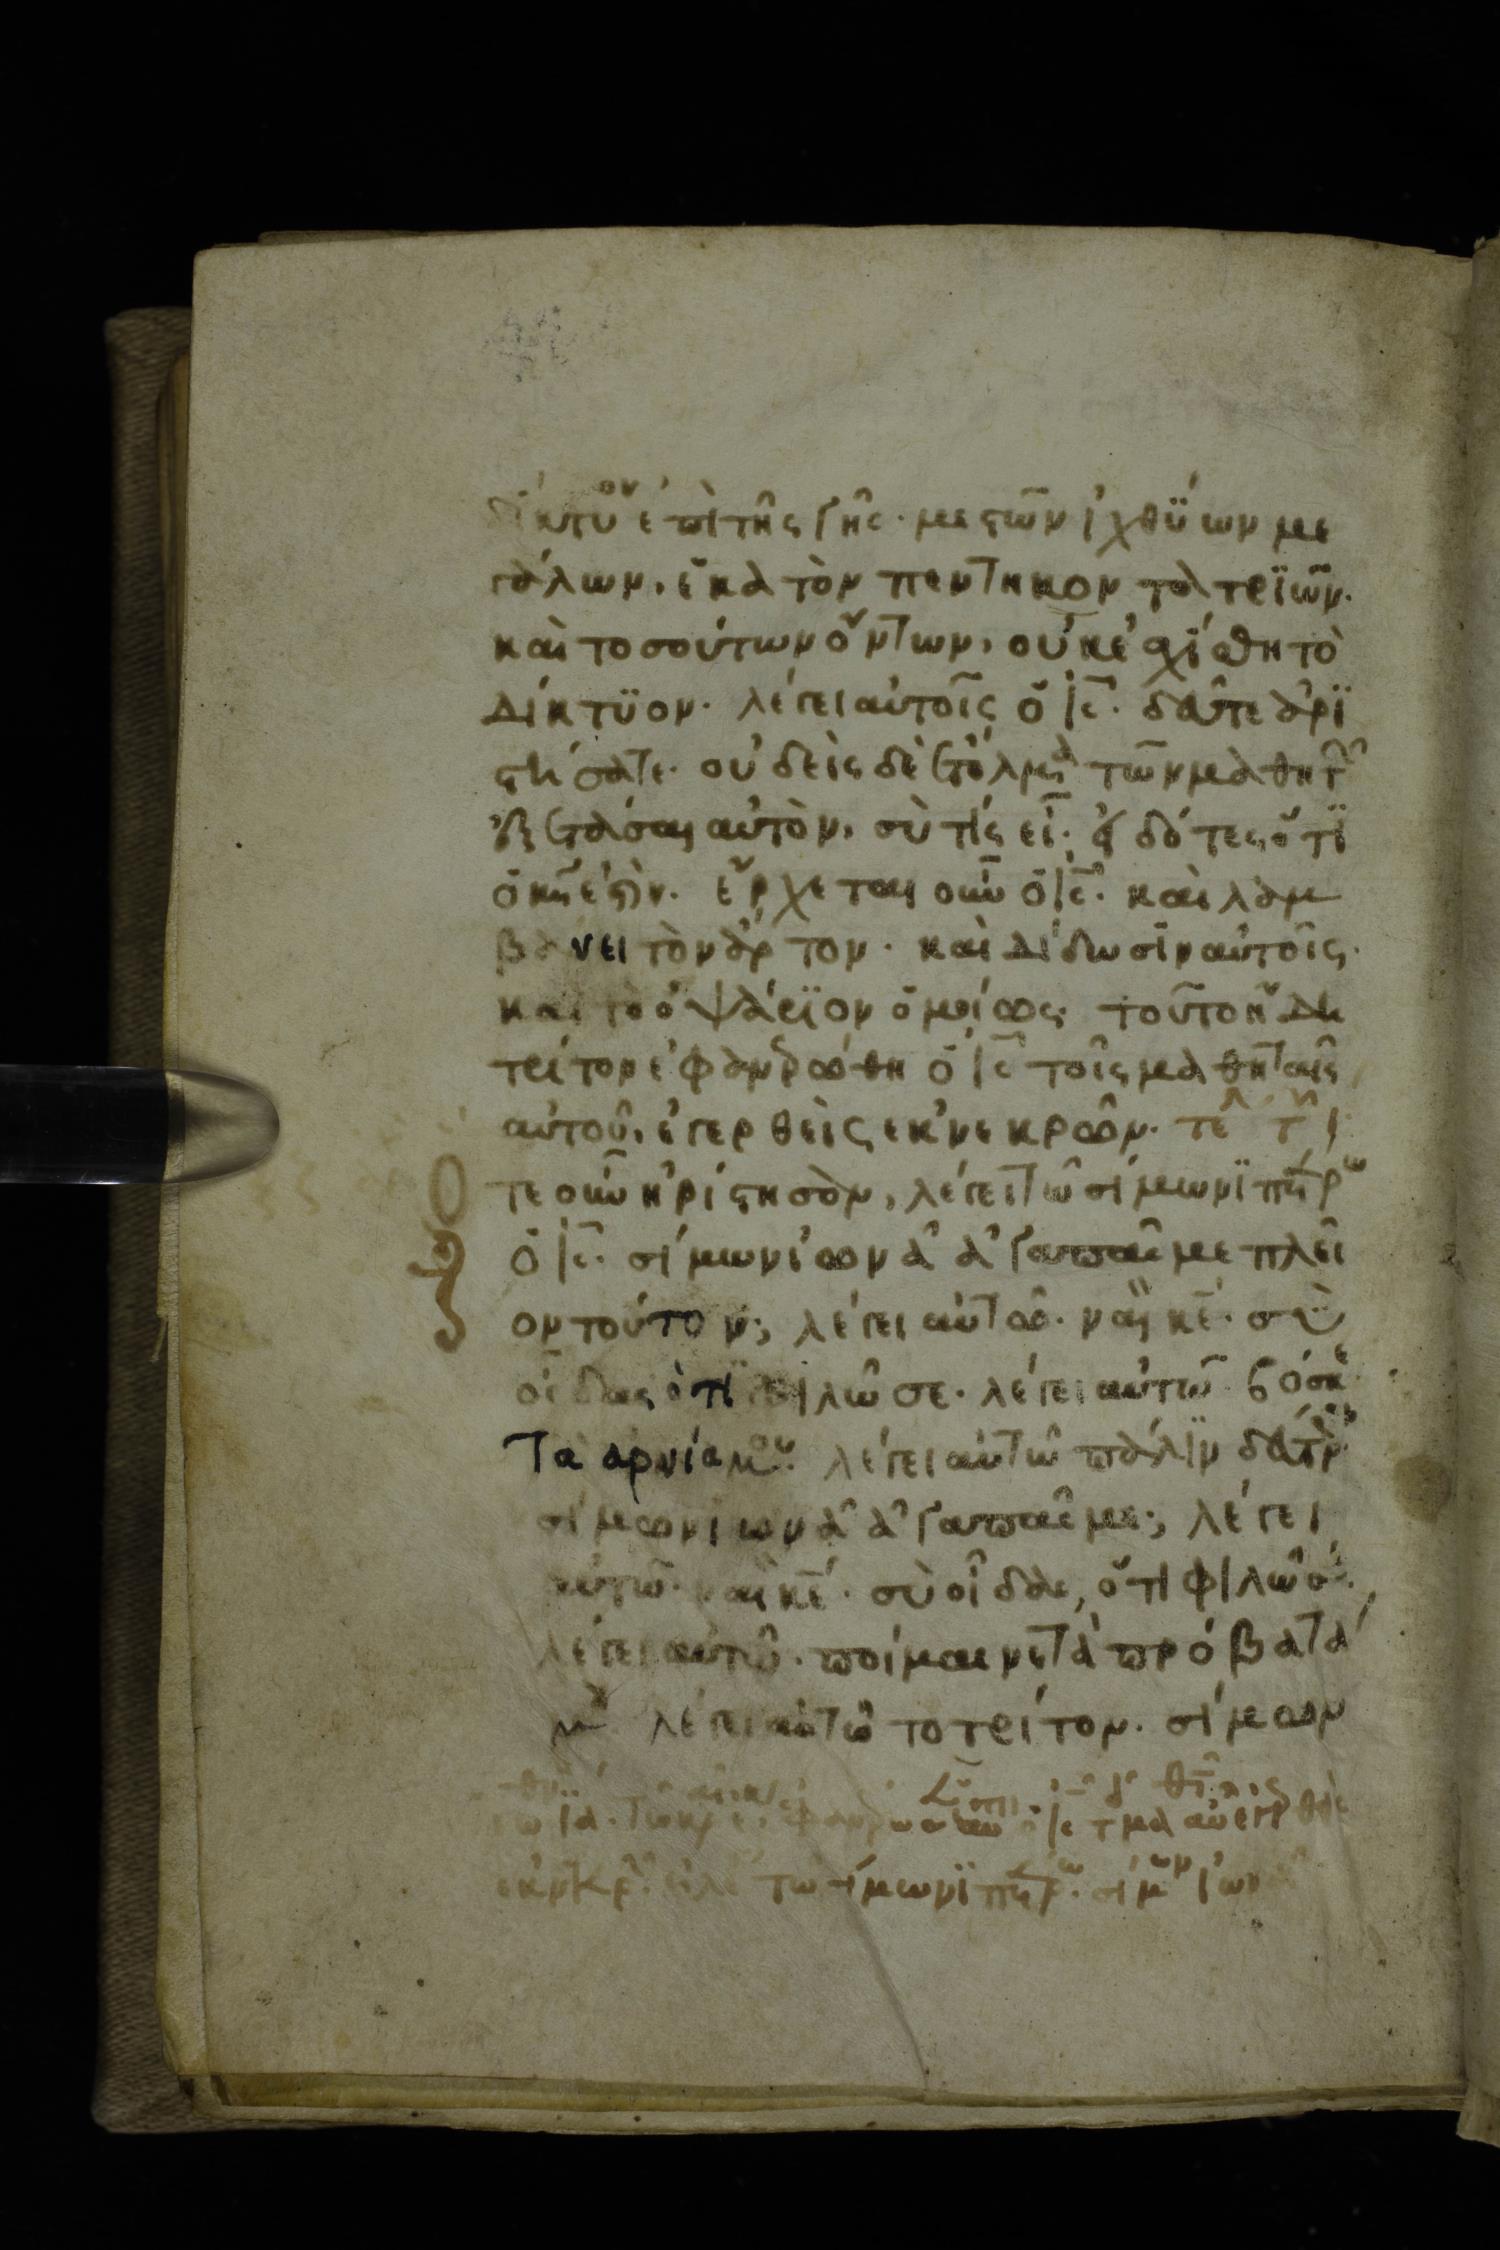 δίκτυον ἐπὶ τῆς γῆς· μεςῶν ἰχθϋων με
γάλων, ἑκατὸν πεντηκοντατρϊῶν·
καὶ τοσούτων ὄντων, οὐκ ἐσχίσθη τὸ
Δίκτϋον· λέγει αὐτοῖς ὁ ις̅· δεῦτε ἀρϊ
ςήσατε· οὐδεὶς δὲ ἐτόλμα τῶν μαθητῶ
ἐξετάσαι αὐτὸν, σὺ τίς εἶ· εἰδότες ὅτϊ
ὁ κς̅ ἐςὶν· ἔρχεται οὖν ὁ ις̅· καὶ λαμ
βάνει τὸν ἄρτον· καὶ Δίδωσϊν αὐτοῖς,
καὶ τὸ ὀψάρϊον ὁμοίως· τοῦτο ἤΔη
τρίτον ἐφανερώθη ὁ ις̅ τοῖς μαθηταῖς
αὐτοῦ, ἐγερθεὶς ἐκ νεκρῶν· τελ
τε οὖν ἠρίςησαν, λέγει τῶ σίμωνϊ πέτρω
Ο
ὁ ις̅· σίμων ἰωνᾶ ἀγαπᾶς με πλεῖ
ον τούτον; λέγει αὐτῶ· ναὶ κε̅· σὺ
οἶδας ὅτϊ φιλῶ σε· λέγει αὐτῶ βόσκε
Τα αρνία μου· λέγει αὐτῶ πάλϊν δεύτερον
σίμων ιωνᾶ ἀγαπᾶς με; λέγει
αὐτῶ· ναὶ κε̅· σὺ οἶδας, ὅτι φιλῶ σε·
λέγει αὐτῶ· ποίμαινε τὰ πρόβατά
μου λέγει αὐτῶ τὸ τρίτον· σίμων
τῶ σίμωνϊ πέτρω· σίμων ἰων